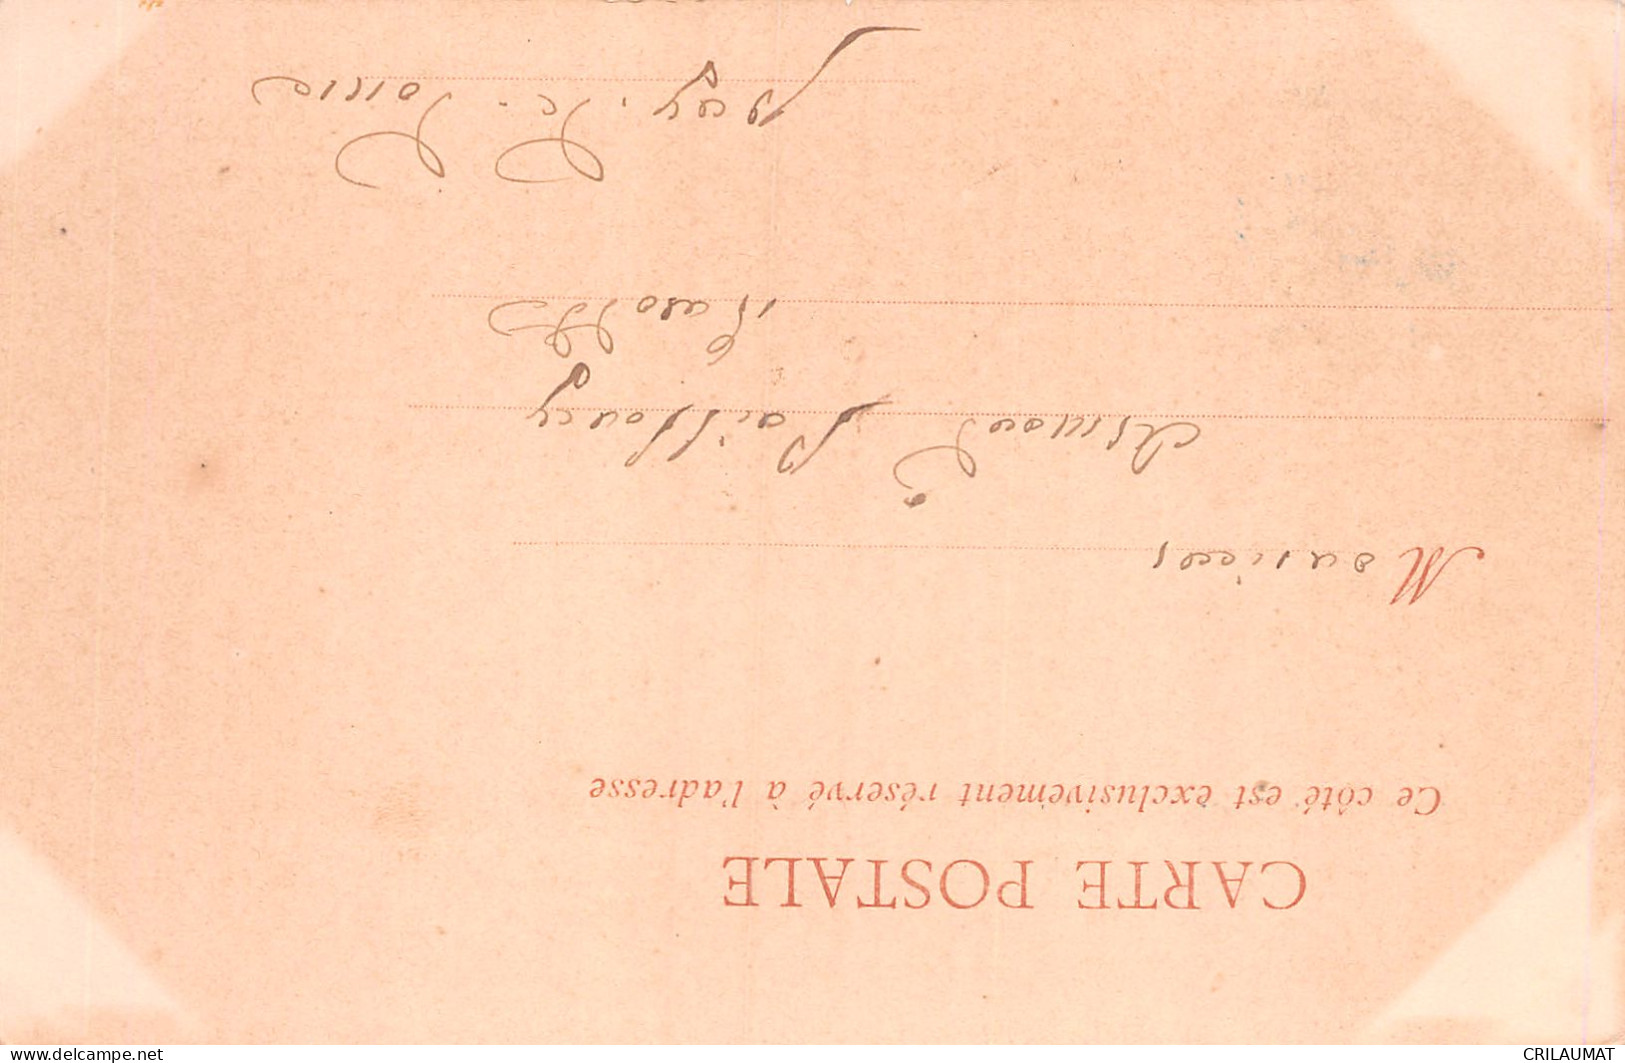 CARTE POSTALE
Ce côté est exclusivement réservé à l'adresse
Monsieur
Armand
Puy-de-Dôme
www.delcampe.net
CRILAUMAT